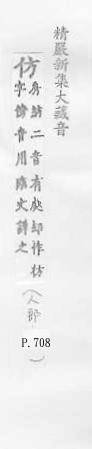 精嚴新集大藏音
仿
房訪二音有處却作彷
字餘書用隨文詳之
(人部
P. 708
)